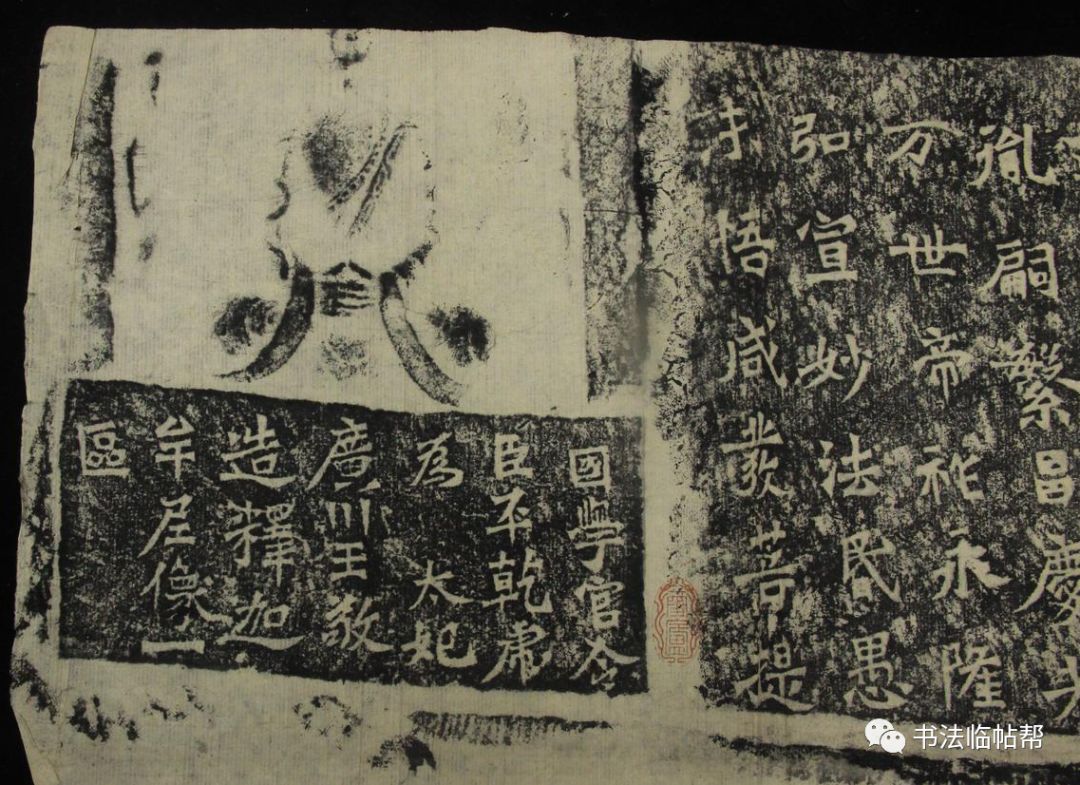 胤嗣繁昌慶
万世帝祚永隆
弘宣妙法昬愚
未悟咸發菩提
國學官令
臣平乾虎
為 太妃
廣川王敬
造釋迦
牟尼像一
區
书法临帖帮